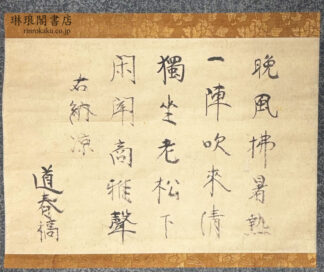 琳琅閣書店
rinrokaku.co.jp
晩風拂暑熱
一陣吹來清
獨坐老松下
閑聞高雅聲
右納涼
道春稿